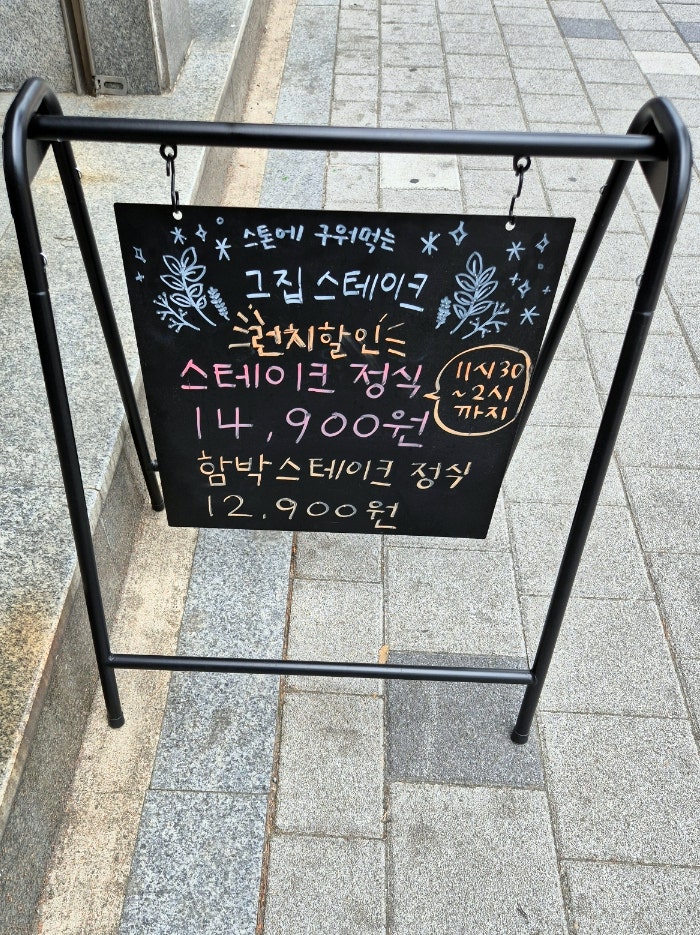 스톤에 구워먹는
그집 스테이크
런치할인
스테이크 정식
14,900원
11시30
~2시
까지
함박스테이크 정식
12,900원